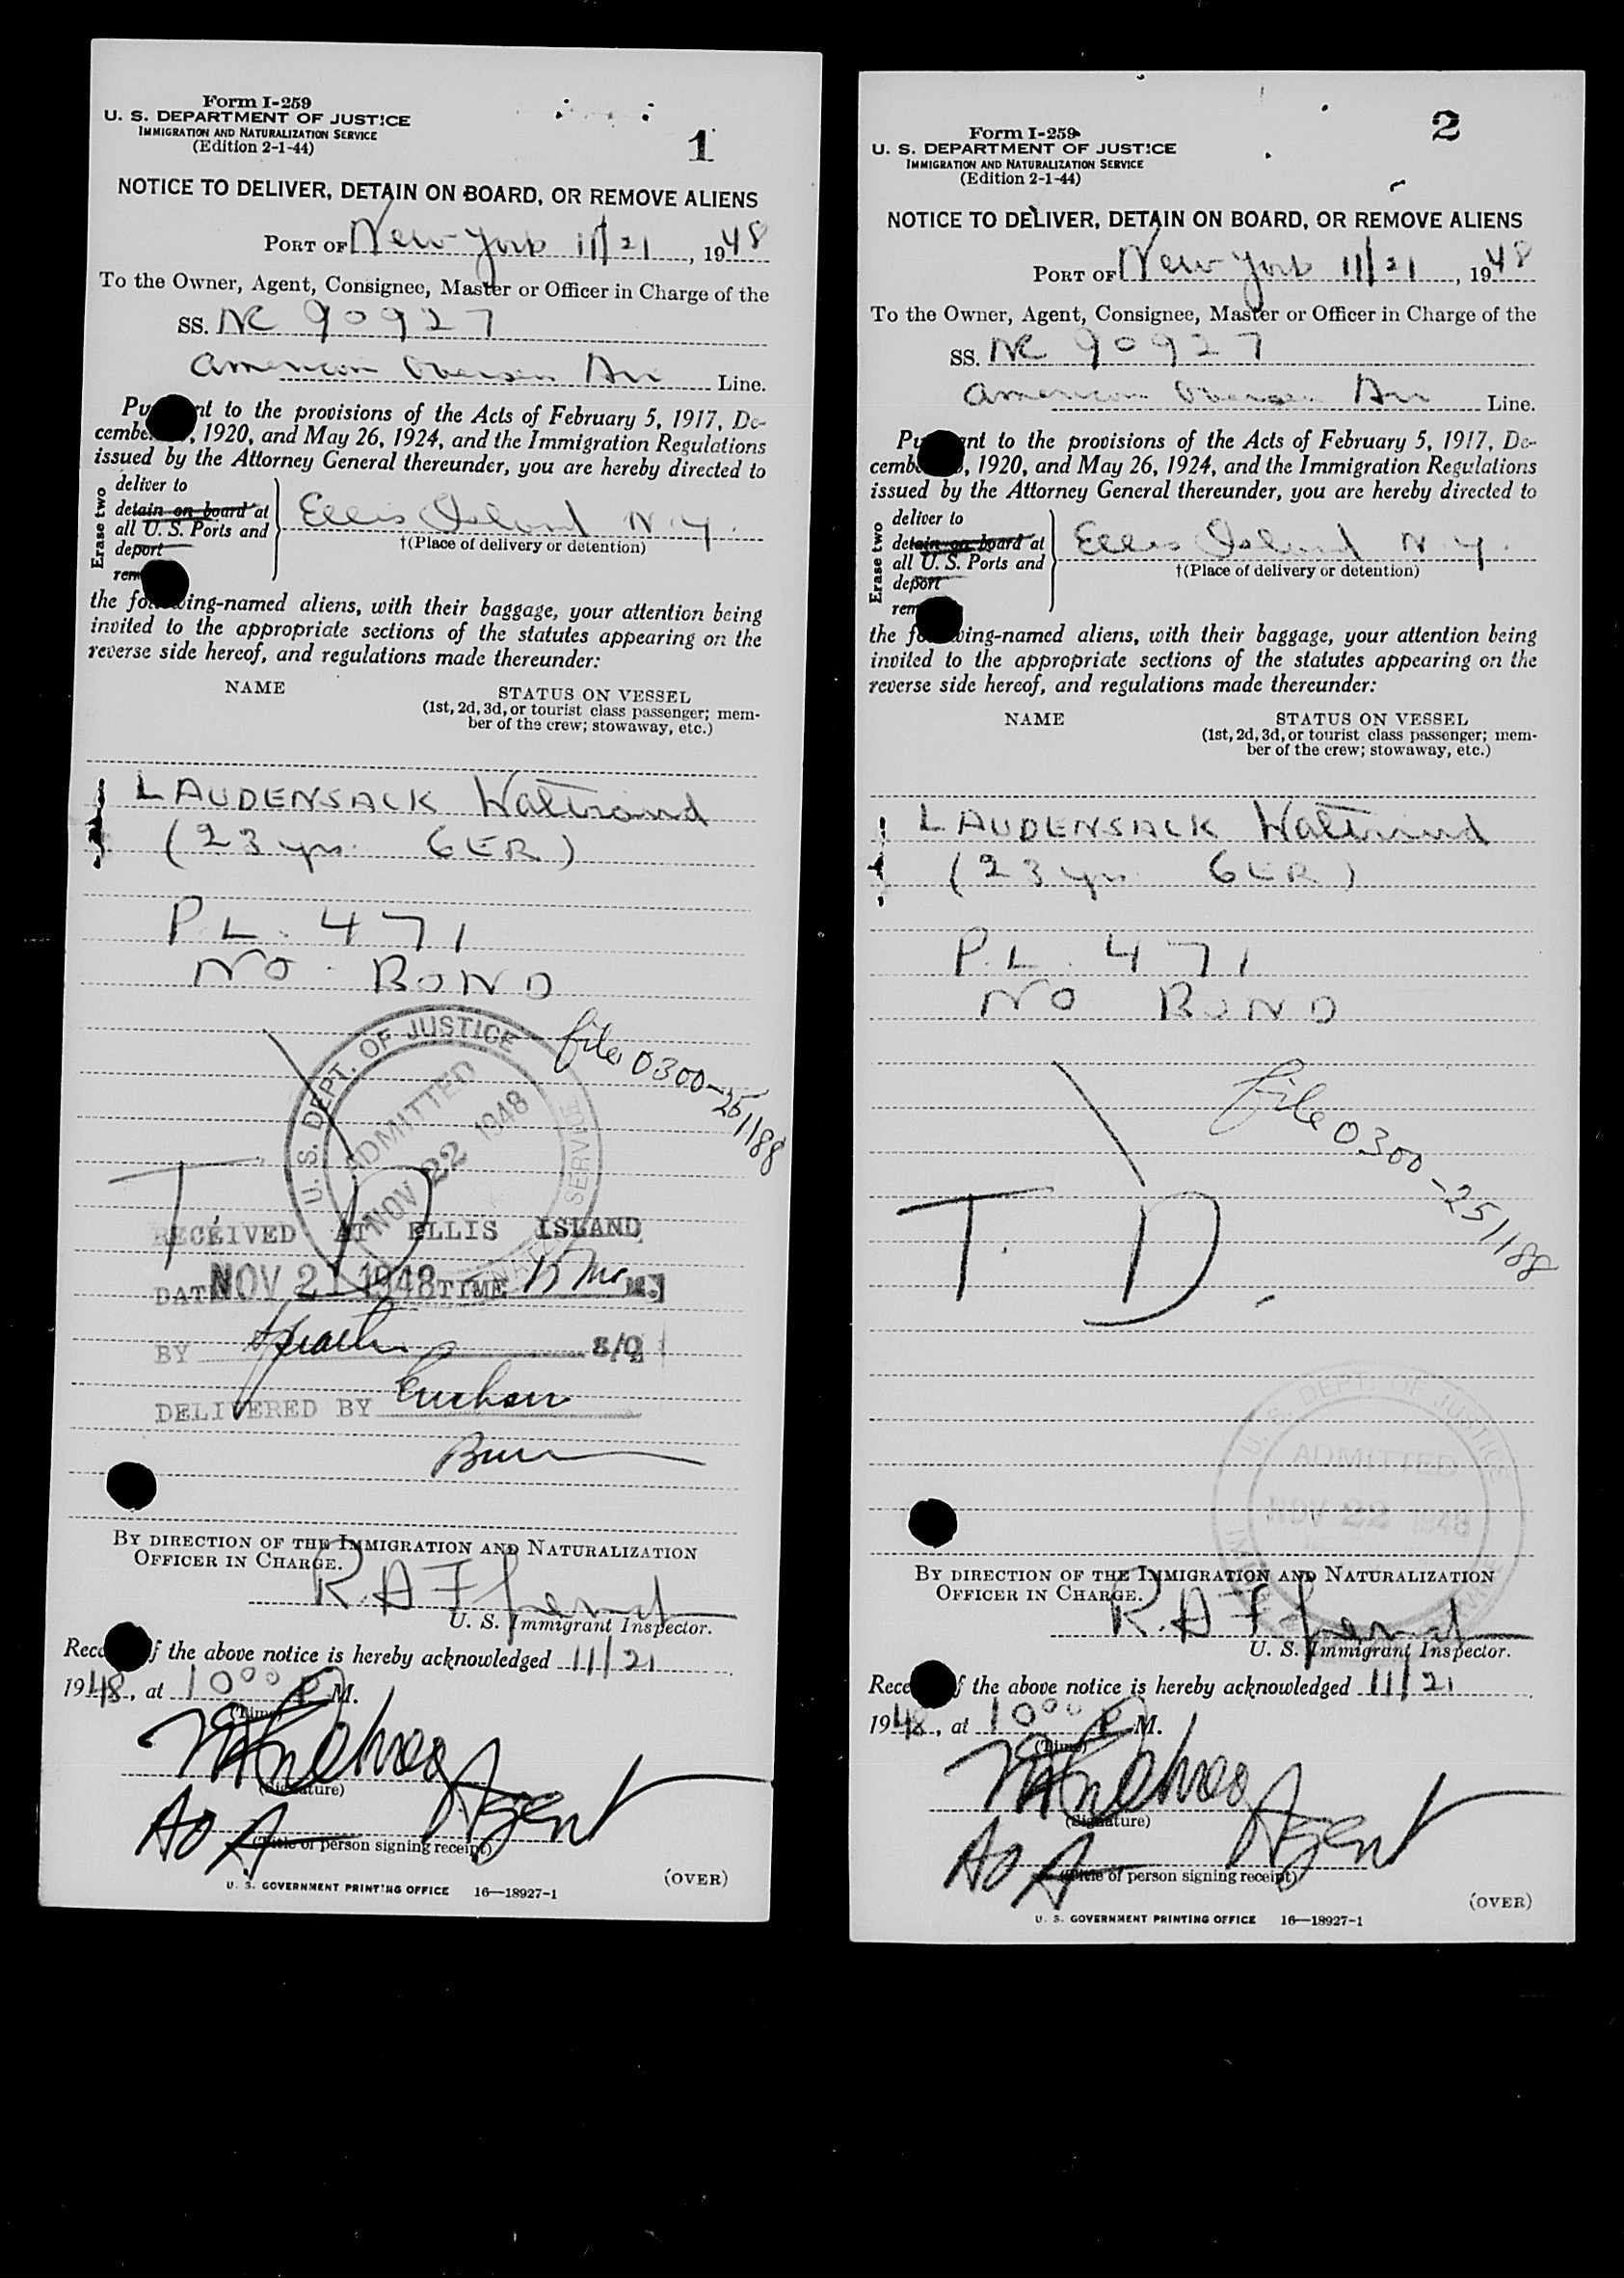 Form I-259
U. S. DEPARTMENT OF JUSTICE
IMMIGRATION AND NATURALIZATION SERVICE
(Edition 2-1-44)
1
NOTICE TO DELIVER, DETAIN ON BOARD, OR REMOVE ALIENS
PORT OF New York 11/21, 1948
To the Owner, Agent, Consignee, Master or Officer in Charge of the
SS. NC 90927
American Overseas Air Line.
to the provisions of the Acts of February 5, 1917, De-
cember , 1920, and May 26, 1924, and the Immigration Regulations
issued by the Attorney General thereunder, you are hereby directed to
Erase two
deliver to
detain on board at
all U. S. Ports and
deport
Ellis Island N.Y.
†(Place of delivery or detention)
the following-named aliens, with their baggage, your attention being
invited to the appropriate sections of the statutes appearing on the
reverse side hereof, and regulations made thereunder:
NAME
STATUS ON VESSEL
(1st, 2d, 3d, or tourist class passenger; mem-
ber of the crew; stowaway, etc.)
LAUDENSACK Waltraud
(23 yrs. GER)
P.L. 471
NO. BOND
file 0300-251188
U. S. DEPT. OF JUSTICE
ADMITTED
NOV 22 1948
SERVICE
T. D
RECEIVED AT ELLIS ISLAND
DATE NOV 21 1948 TIME
BY S/O
DELIVERED BY
BY DIRECTION OF THE IMMIGRATION AND NATURALIZATION
OFFICER IN CHARGE.
R.A.
U. S. Immigrant Inspector.
of the above notice is hereby acknowledged 11/21
1948, at 10⁰⁰ P M.
(Time)
(Signature)
AOA Agent
(Title of person signing receipt)
(OVER)
U. S. GOVERNMENT PRINTING OFFICE 16—18927-1
Form I-259
U. S. DEPARTMENT OF JUSTICE
IMMIGRATION AND NATURALIZATION SERVICE
(Edition 2-1-44)
2
NOTICE TO DELIVER, DETAIN ON BOARD, OR REMOVE ALIENS
PORT OF New York 11/21, 1948
To the Owner, Agent, Consignee, Master or Officer in Charge of the
SS. NC 90927
American Overseas Air Line.
to the provisions of the Acts of February 5, 1917, De-
cember , 1920, and May 26, 1924, and the Immigration Regulations
issued by the Attorney General thereunder, you are hereby directed to
Erase two
deliver to
detain on board at
all U. S. Ports and
deport
Ellis Island N.Y.
†(Place of delivery or detention)
the following-named aliens, with their baggage, your attention being
invited to the appropriate sections of the statutes appearing on the
reverse side hereof, and regulations made thereunder:
NAME
STATUS ON VESSEL
(1st, 2d, 3d, or tourist class passenger; mem-
ber of the crew; stowaway, etc.)
LAUDENSACK Waltraud
(23 yrs GER)
P.L. 471
NO BOND
file 0300-251188
T. D.
U. S. DEPT. OF JUSTICE
ADMITTED
NOV 22 1948
BY DIRECTION OF THE IMMIGRATION AND NATURALIZATION
OFFICER IN CHARGE.
R.A.
U. S. Immigrant Inspector.
of the above notice is hereby acknowledged 11/21
1948, at 10⁰⁰ P M.
(Time)
(Signature)
AOA Agent
(Title of person signing receipt)
(OVER)
U. S. GOVERNMENT PRINTING OFFICE 16—18927-1